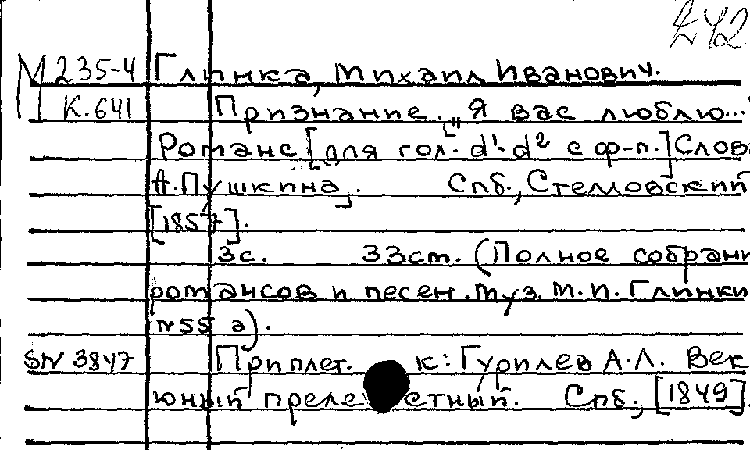 242
М 235-4 Глинка, Михаил Иванович.
К.641 Признание. „Я вас люблю..."
Романс [для гол. d¹-d² с ф-п.] Слов
А. Пушкина. Спб., Стелловский
[1857].
3с. 33см. (Полное собрани
романсов и песен. муз. М.И. Глинки
№55 а).
SN 3847 Приплет. к: Гурилев А.Л. Век
юный преле стный. Спб., [1849].